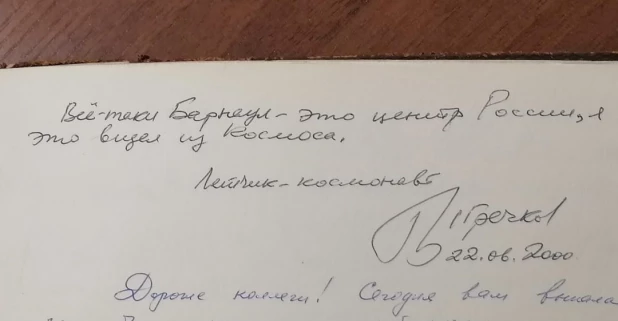 Всё-таки Барнаул - это центр России, я
это видел из Космоса.
Летчик-космонавт
Гречко
22.06.2000
Дорогие коллеги! Сегодня вам выпала